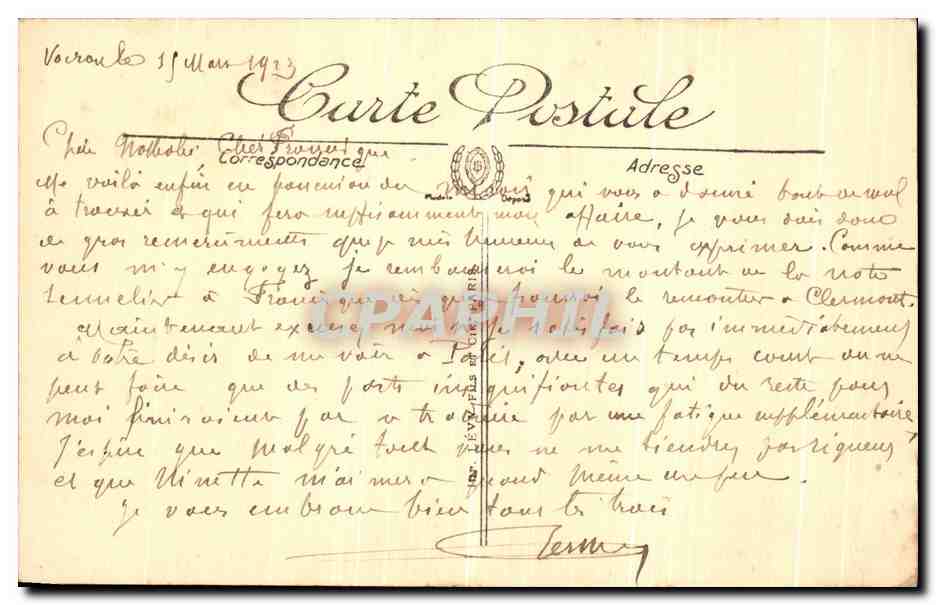 15 Mars 1923
Carte Postale
Chère Nathalie, Cher Francisque
Correspondance
Adresse
Me voilà enfin en possession du qui vous a donné tant de mal
à trouver et qui fera suffisamment mon affaire, je vous dois donc
de gros remerciements que je suis heureux de vous exprimer. Comme
vous m'y engagez je rembourserai le montant de la note
à Francisque dès que pourrai le remonter à Clermont.
Maintenant excusez moi si je ne satisfais pas immédiatement
à votre désir de me voir à Paris, avec un temps court on ne
peut faire que des insignifiantes qui du reste pour
moi finiraient par se traduire par une fatigue supplémentaire
J'espère que malgré tout vous ne me tiendrez pas rigueur
et que Ninette m'aimera quand même un peu
Je vous embrasse bien tous les trois
IMP. LÉVY FILS ET CIE PARIS
CPAPHIL